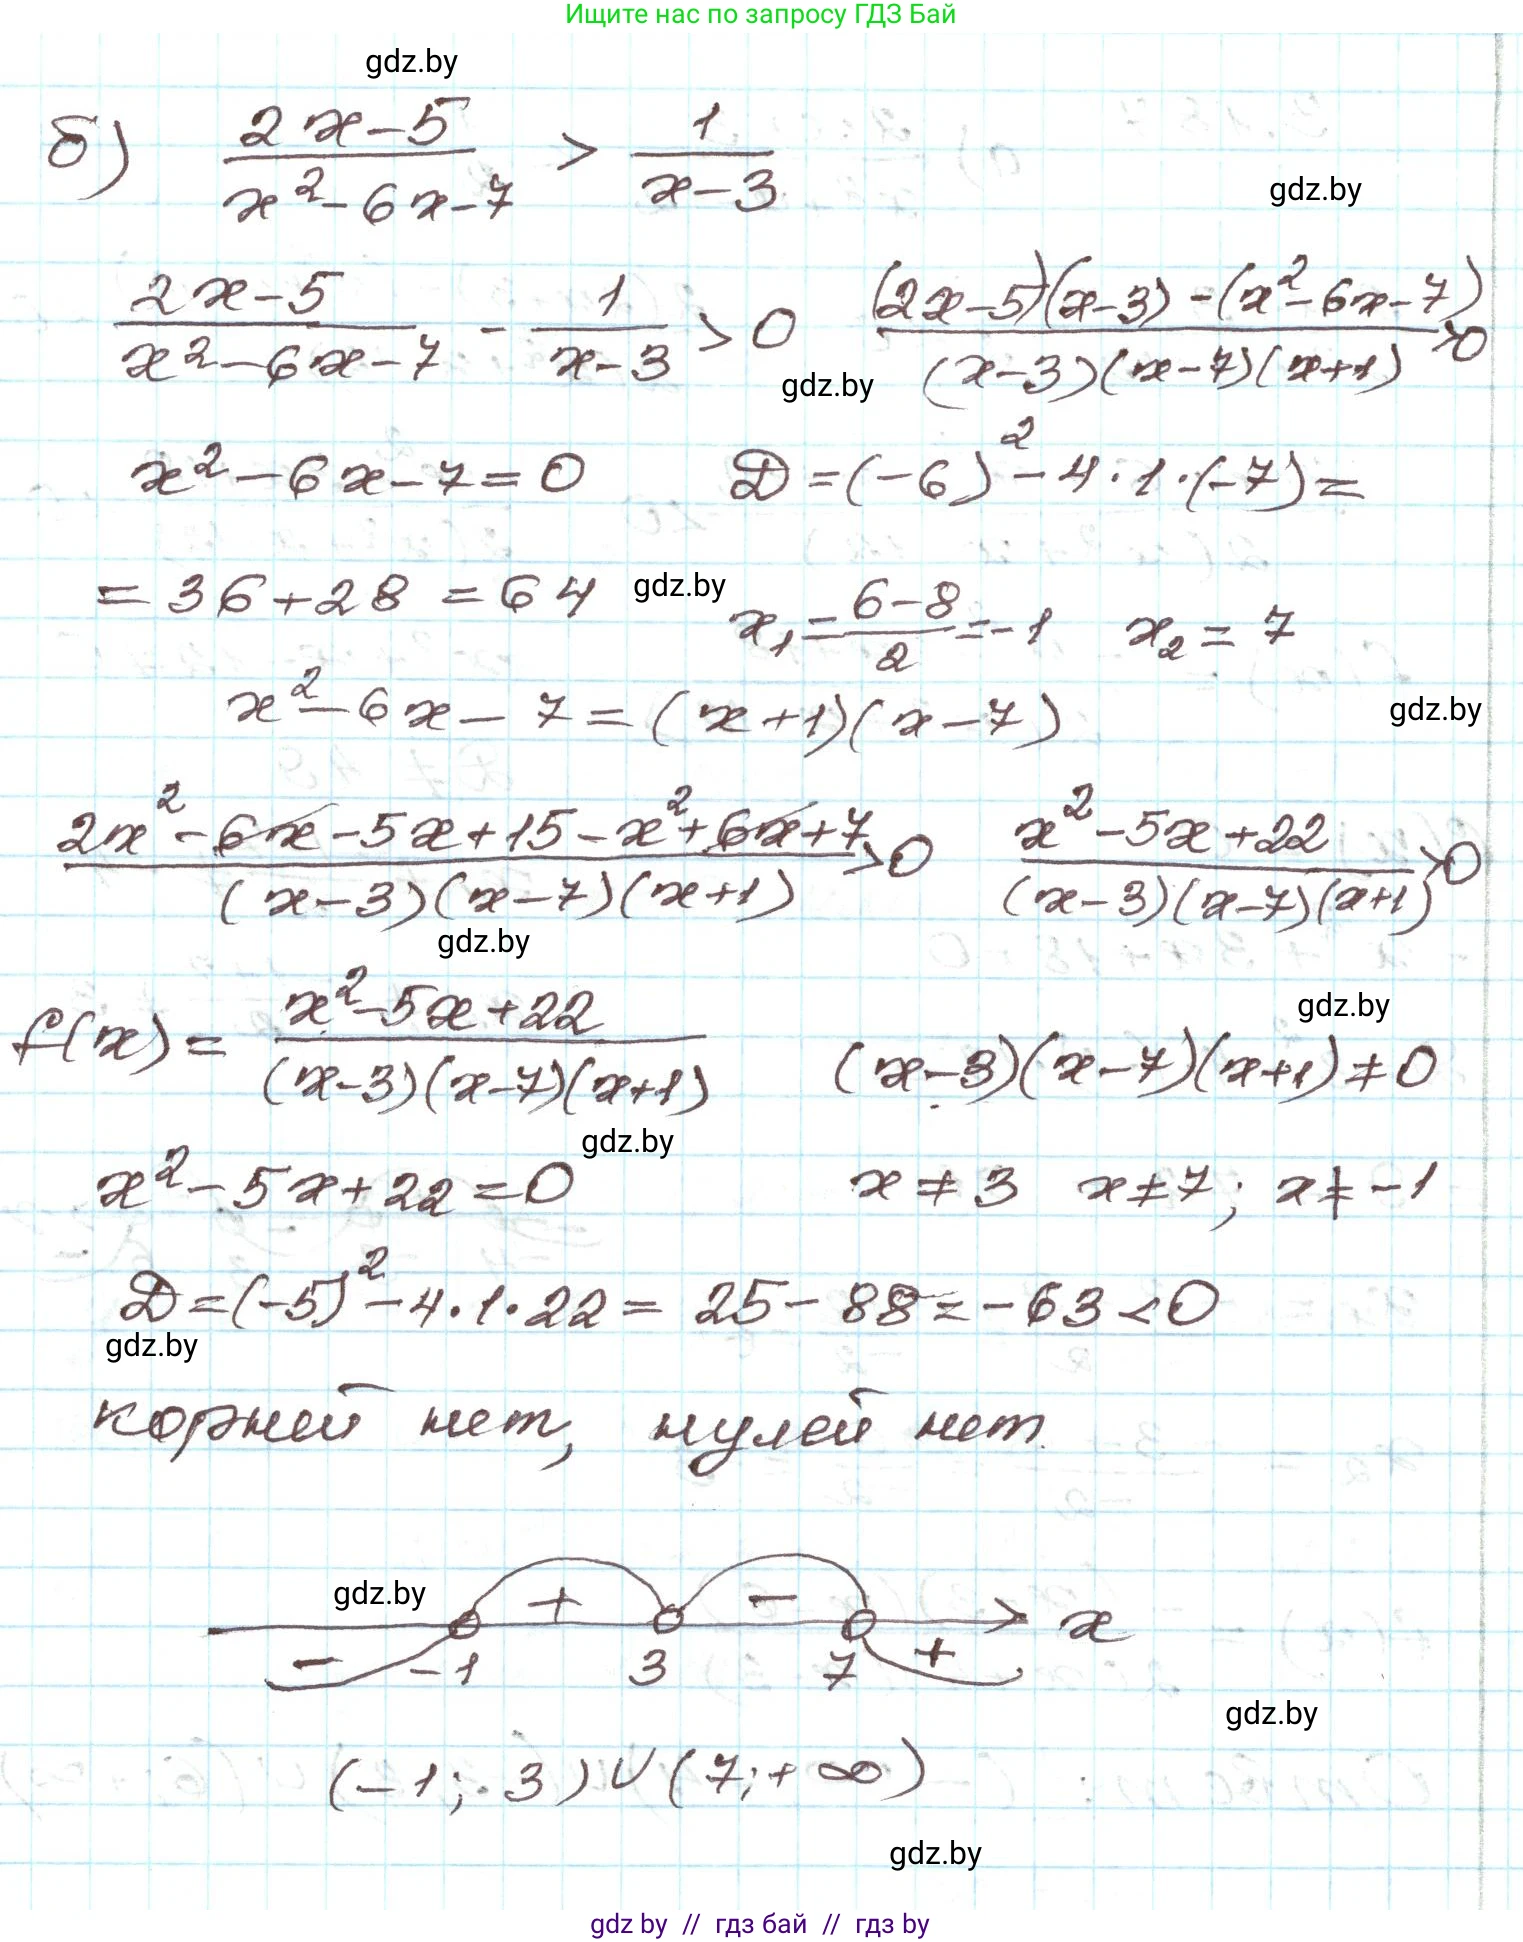 Ищите нас по запросу ГДЗ Бай
gdz.by
б) (2x-5)/(x²-6x-7) > 1/(x-3)
gdz.by
(2x-5)/(x²-6x-7) - 1/(x-3) > 0   ((2x-5)(x-3) - (x²-6x-7))/((x-3)(x-7)(x+1)) > 0
gdz.by
x²-6x-7=0   D=(-6)²-4·1·(-7)=
=36+28=64   gdz.by   x₁=(6-8)/2=-1   x₂=7
x²-6x-7=(x+1)(x-7)
gdz.by
(2x²-6x-5x+15-x²+6x+7)/((x-3)(x-7)(x+1)) >0   (x²-5x+22)/((x-3)(x-7)(x+1)) >0
gdz.by
f(x)=(x²-5x+22)/((x-3)(x-7)(x+1))   (x-3)(x-7)(x+1)≠0
gdz.by
gdz.by
x²-5x+22=0   x≠3   x≠7; x≠-1
D=(-5)²-4·1·22=25-88=-63<0
gdz.by
корней нет, нулей нет.
gdz.by
+ - x
- -1 3 7 +
gdz.by
(-1; 3)∪(7;+∞)
gdz.by
gdz by // гдз бай // гдз by